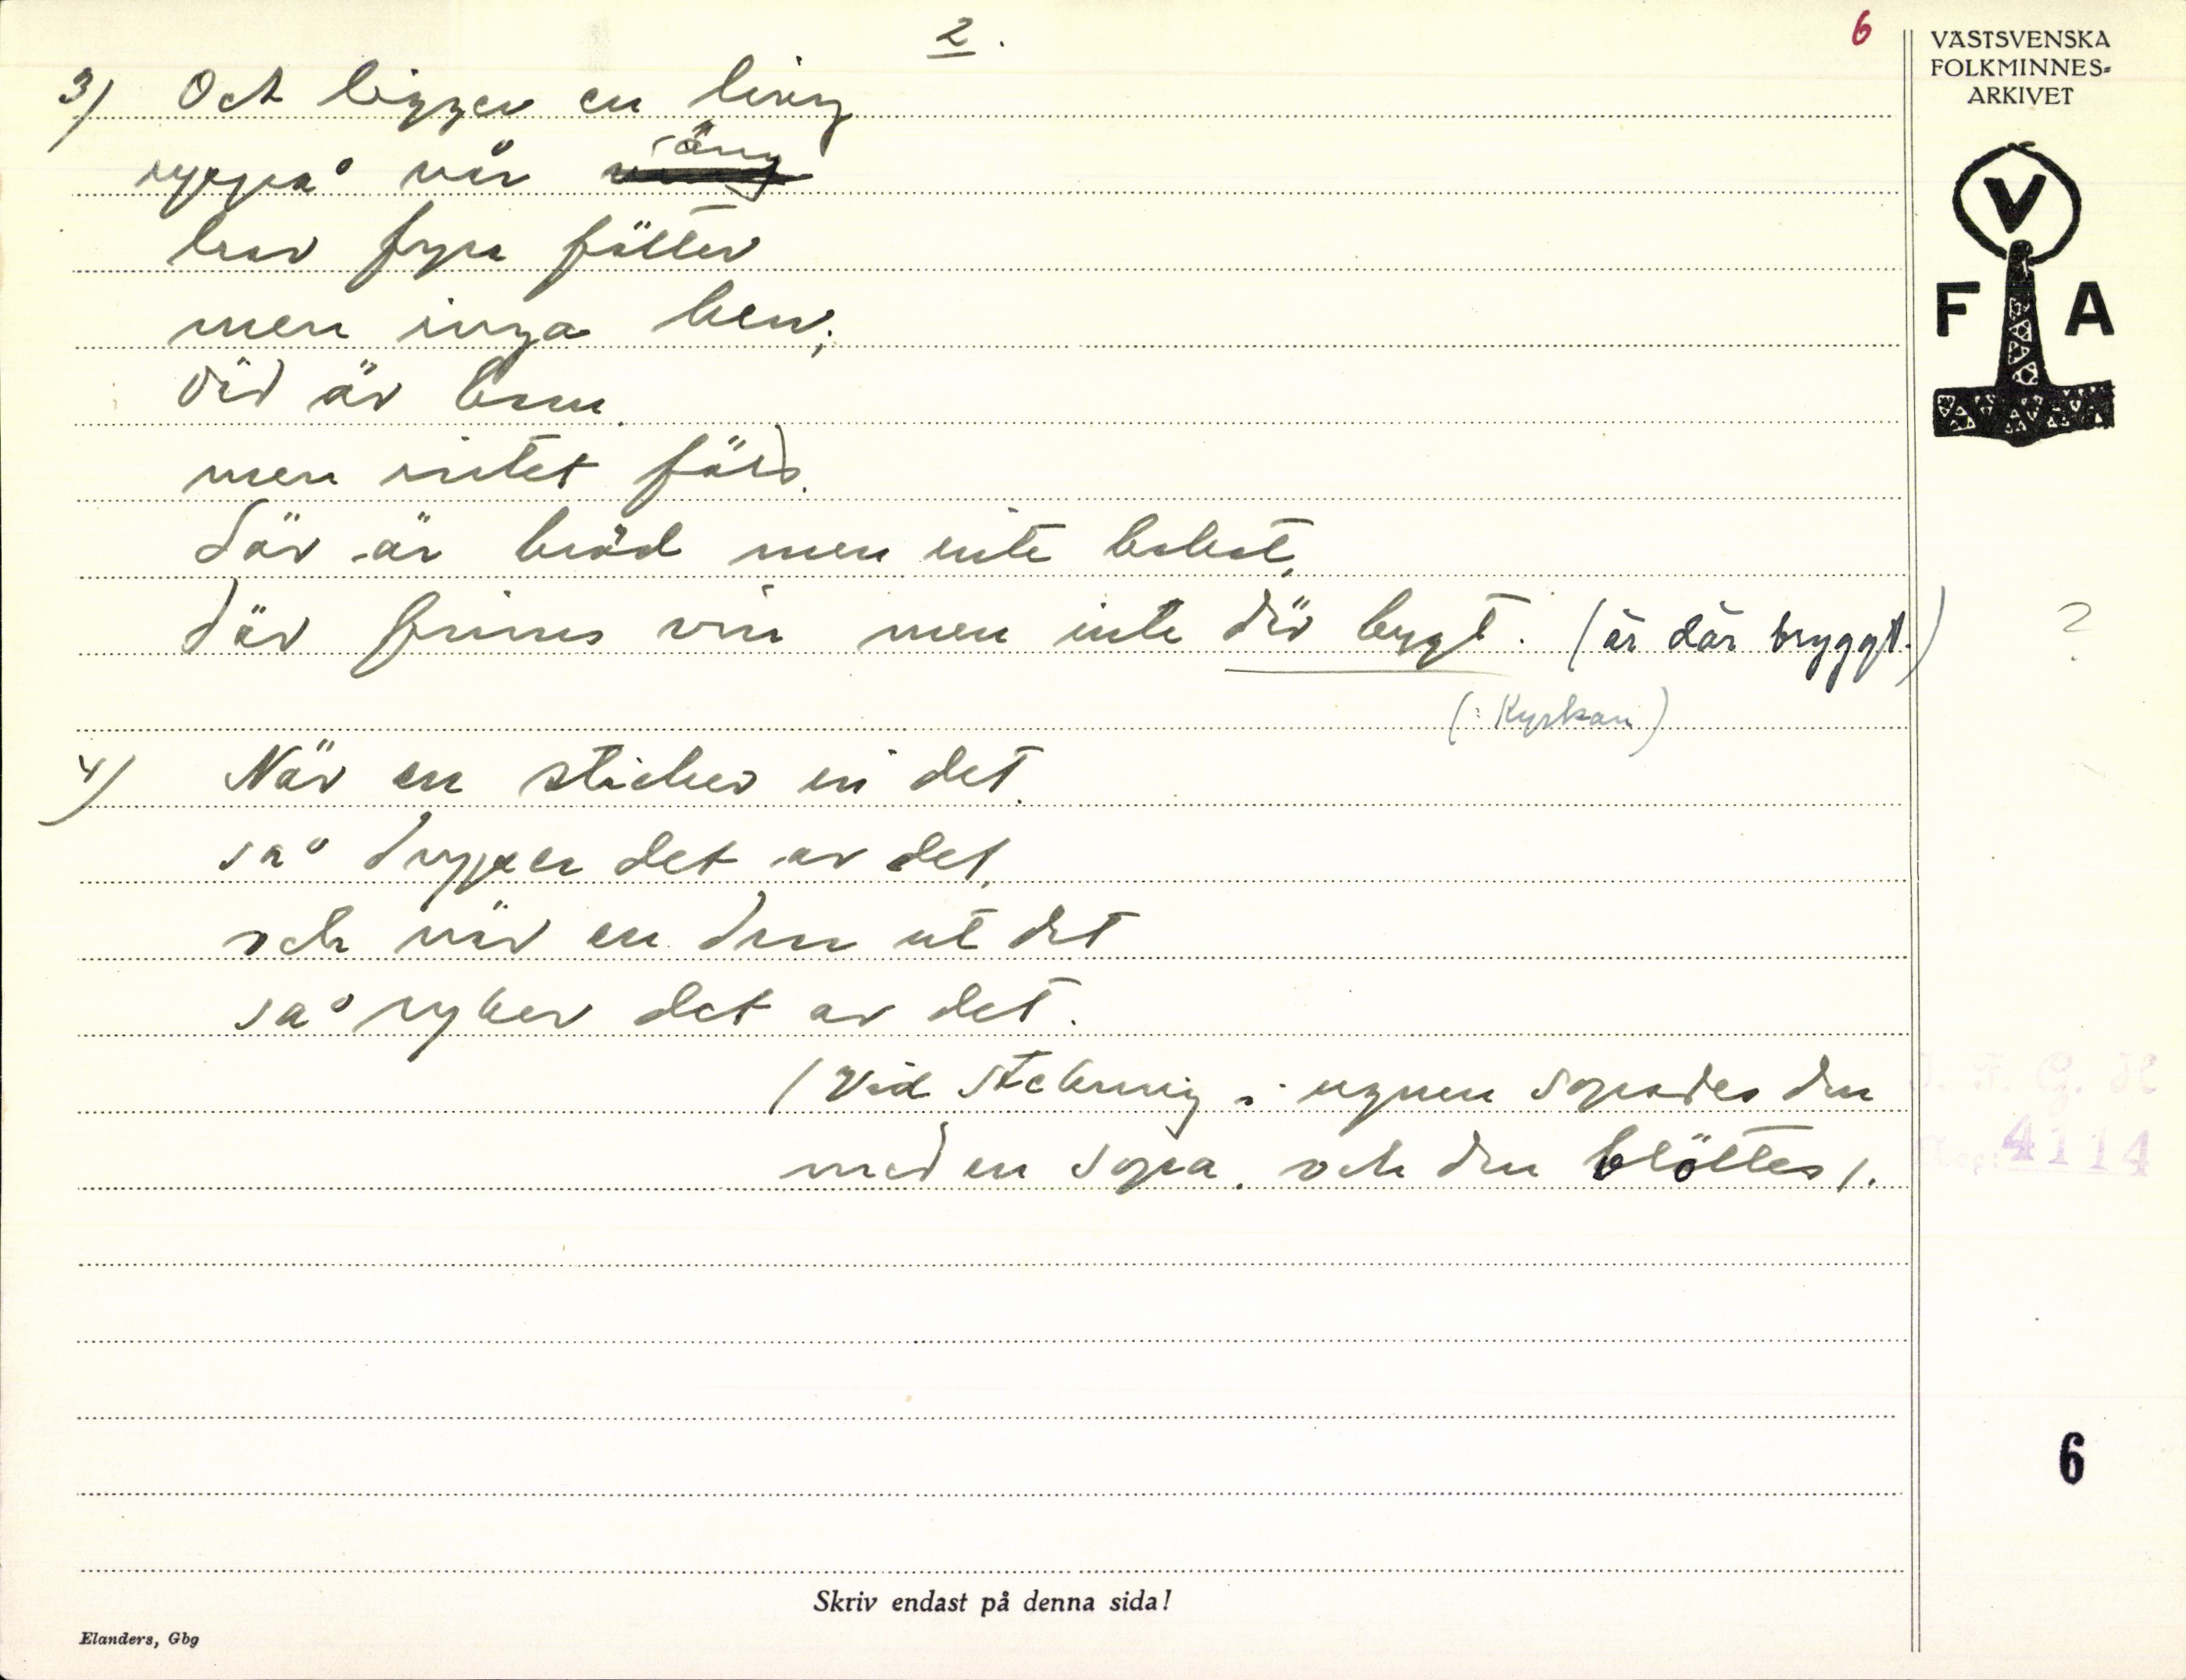 2.
6
VÄSTSVENSKA
FOLKMINNES-
ARKIVET
V
F A
3) Det ligger en ling
uppå vår äng
har fyra fötter
men inga ben,
där är barn
men intet
där är bröd men inte bakat,
där finns vin men inte där brygt. (är där bryggt.)
?
(: Kyrkan)
4) När en sticker in det
så dryper det av det,
och när en drar ut det
så ryker det av det.
(Vid stekning i ugnen sopades den
med en sopa. och den blöttes).
4114
6
Skriv endast på denna sida!
Elanders, Gbg